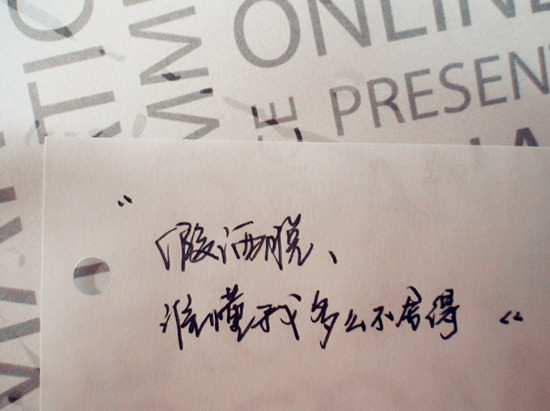 ONLINE
PRESENT
“
假洒脱、
谁懂我多么不舍得 “